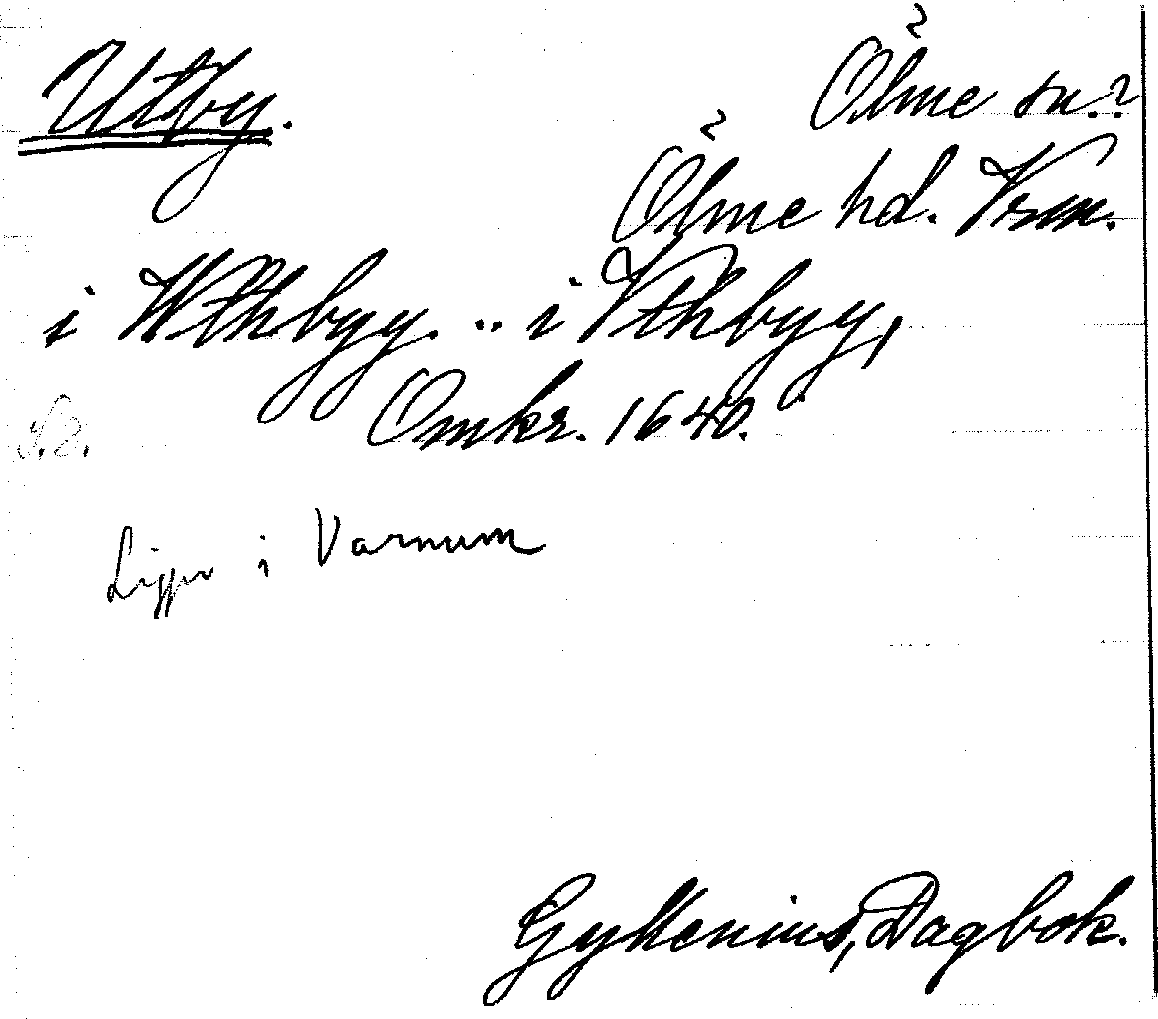 Utby.
Ölme sn.?
Ölme hd. Vrm.
i Wthbyy. .. i Vthbyy,
Omkr. 1640.
S. 2.
Ligger i Varnum
Gyllenius, Dagbok.